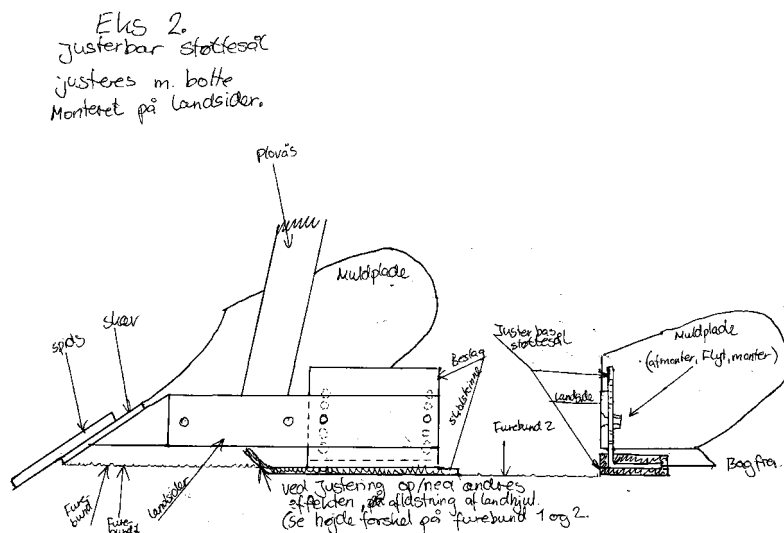 Eks 2.
Justerbar støttesål
justeres m. bolte
Monteret på landsider.
plovås
Muldplade
skær
spids
Beslag
slidskinne
Justerbar
støttesål
Muldplade
(afmonter, Flyt, monter)
Landside
Furebund 2
Bagfra.
Fure-
bund 1
Fure-
bund 2
landsider
ved Justering op/ned ændres
effekten, afløstning af landhjul.
(Se højde forskel på furebund 1 og 2.